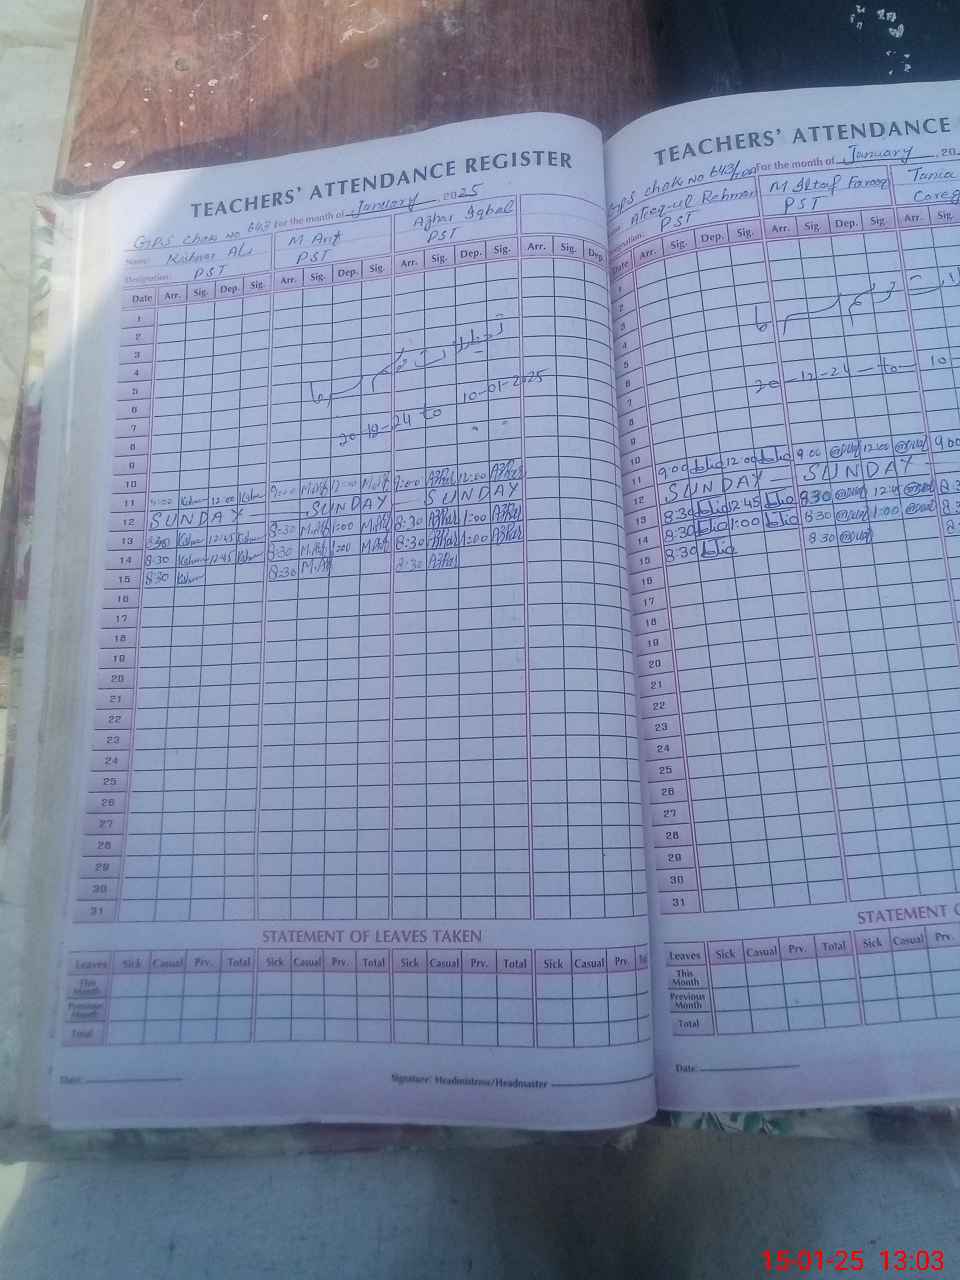 TEACHERS' ATTENDANCE REGISTER
GPS Chak No 643 For the month of January 2025
Name: Ali M Arif Azhar Iqbal
Designation: PST PST PST
Date Arr. Sig. Dep. Sig. Arr. Sig. Dep. Sig. Arr. Sig. Dep. Sig. Arr. Sig. Dep.
1
2
3
4
5
تعطیلات موسم سرما
6
7
20-12-24 to 10-01-2025
8
9
10
11 9:00 12:00 9:00 M.Arif 12:00 M.Arif 9:00 Azhar 12:00 Azhar
12 SUNDAY SUNDAY SUNDAY
13 8:30 12:45 8:30 M.Arif 1:00 M.Arif 8:30 Azhar 1:00 Azhar
14 8:30 12:45 8:30 M.Arif 1:00 M.Arif 8:30 Azhar 1:00 Azhar
15 8:30 8:30 M.Arif 8:30 Azhar
16
17
18
19
20
21
22
23
24
25
26
27
28
29
30
31
STATEMENT OF LEAVES TAKEN
Leaves Sick Casual Prv. Total Sick Casual Prv. Total Sick Casual Prv. Total Sick Casual Prv.
This Month
Previous Month
Total
Date:
Signature: Headmistress/Headmaster
TEACHERS' ATTENDANCE
GPS Chak No 643/ For the month of January 20
Ateeq-ul Rehman M Iltaf Farooq Tania
Designation: PST PST
Date Arr. Sig. Dep. Sig. Arr. Sig. Dep. Sig. Arr.
1
2
3
موسم سرما
4
5
6
20-12-24 to 10-
7
8
9
10
11 9:00 12:00 9:00 12:00 9:00
12 SUNDAY SUNDAY
13 8:30 12:45 8:30 12:45
14 8:30 1:00 8:30 1:00
15 8:30 8:30
16
17
18
19
20
21
22
23
24
25
26
27
28
29
30
31
STATEMENT O
Leaves Sick Casual Prv. Total Sick Casual Prv.
This Month
Previous Month
Total
Date:
15-01-25 13:03